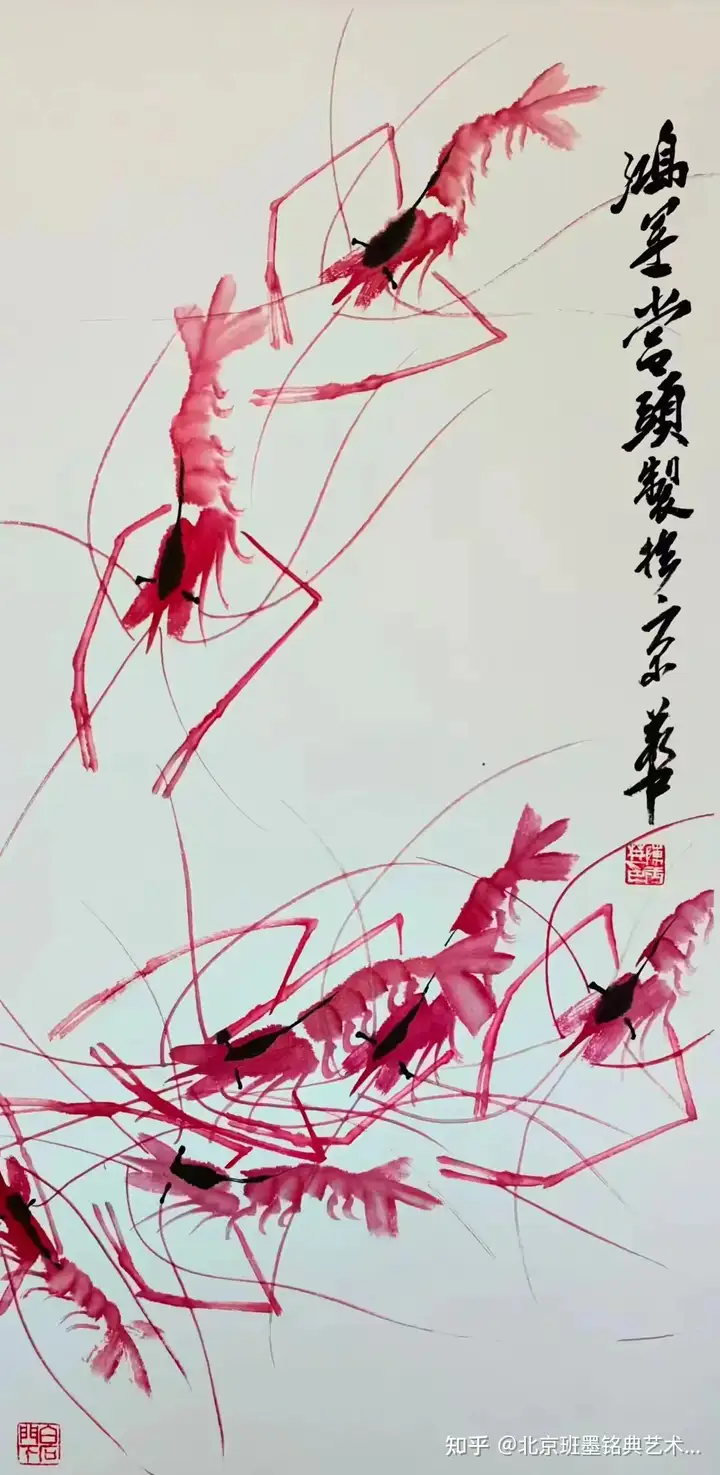 鴻運當頭製於京華
白石門下
知乎 @北京班墨铭典艺术...